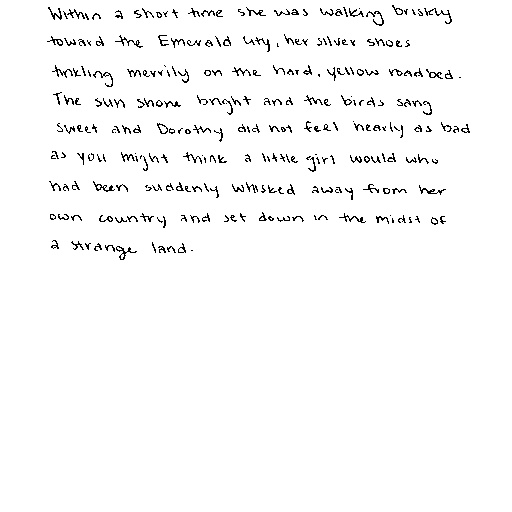 Within a short time she was walking briskly
toward the Emerald City, her silver shoes
tinkling merrily on the hard, yellow roadbed.
The sun shone bright and the birds sang
sweet and Dorothy did not feel nearly as bad
as you might think a little girl would who
had been suddenly whisked away from her
own country and set down in the midst of
a strange land.